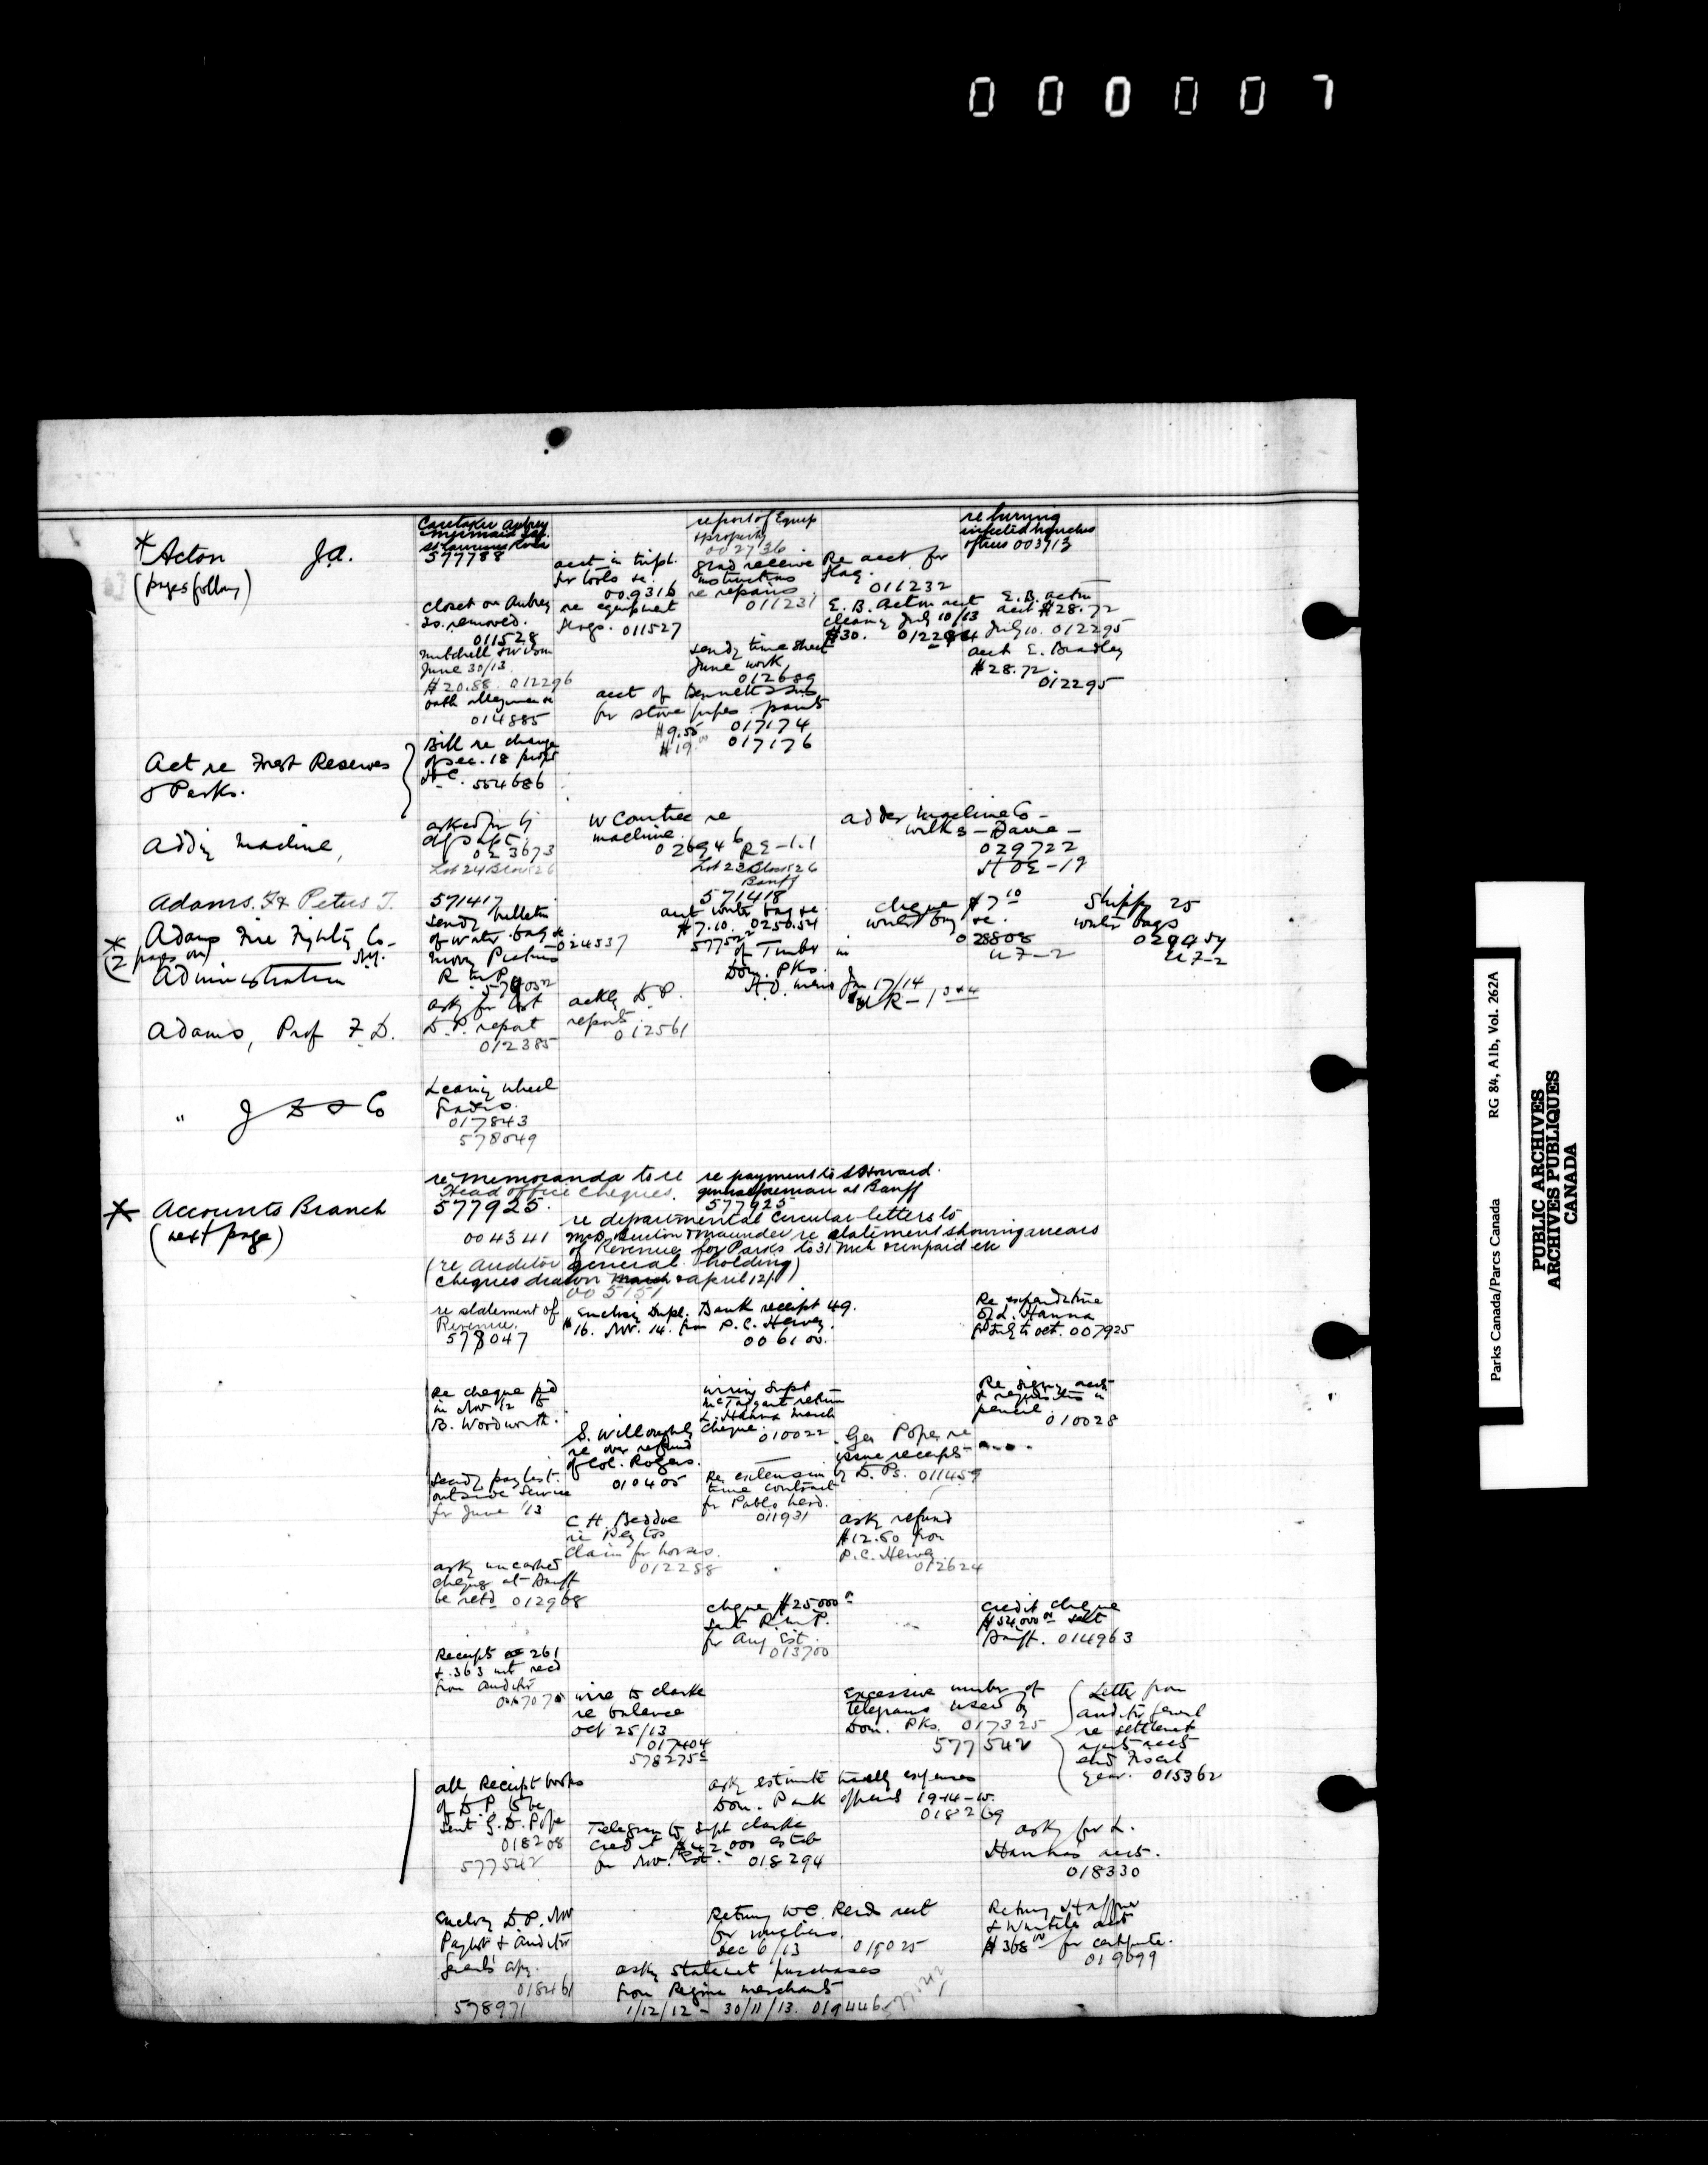 000007
* Acton J.A.
(pages follow)
Caretaker Aubrey
577788
acct in tripl.
for tools &c.
009316
report of Equip
& property
002736
glad receive
instructions
re repairs
011231
Re acct for
flag.
011232
returning
infected
003713
closet on Aubrey
Is. removed.
011528
re equipment
flags. 011527
E. B. Acton acct
cleaning July 10/13
$30.
E. B. Acton
acct $28.72
July 10. 012295
Mitchell & Wilson
June 30/13
$20.88. 012296
sendg time sheet
June work,
012689
acct E. Bradley
$28.72.
012295
oath allegiance
014885
acct of Bennett & Sons
for stove pipes. paint
$9.55 017174
$19.00 017176
Act re Forest Reserves
& Parks.
Bill re change
of sec. 18
H of C. 554686
Adding Machine,
asked for by
023673
Lot 24 Block 26
W Courtice re
machine.
026946 RE-1.1
Lot 23 Block 26
Banff
adder machine Co -
Wilks - Dame -
029722
HOE-19
Adams. Peter J.
571417
571418
* Adams Fire Fighting Co.
(2 pages on) N.Y.
sendg bulletin
of water bag &c
024537
acct water bag &c
$7.10. 025054
cheque $7.10
water bag &c.
028808
U7-2
Shippg 25
water bags
029954
U7-2
Administration
Moving Pictures
R.M.P.
577522
of Timber in
Dom. Pks.
Jan 17/14
Adams, Prof F. D.
askg for last
D.P. report
012385
ackg D.P.
report.
012561
" J D & Co
Leaning wheel
Graders.
017843
578049
* Accounts Branch
(next page)
re memoranda to re
Head office cheques.
577925.
re payment to S Howard.
general foreman at Banff
577925
004341
re departmental circular letters to
re statement showing arrears
of Revenue for Parks to 31 Mch & unpaid etc
(re Auditor General holding)
cheques drawn March & April 12/1)
005151
re statement of
Revenue.
578047
Enclosg Dupl. Bank receipt 49.
16. Nov. 14. from P. C. Hervey.
006100.
Re expenditure
of L. Hanna
for July to Oct. 007925
Re cheque pd
in Nov '12 to
B. Woodworth.
wiring Supt
McTaggart return
L. Hanna March
cheque. 010022
Re signg accts
& requisitions in
pencil. 010028
S. Willoughby
re over refund
of Col. Rogers.
010405
Geo Pope re
issue receipts
by D. Ps. 011459
Sendg paylist.
outside Service
for June '13
Re extension
time contract
for Pablo herd.
011931
C H. Beddoe
re
claim for horses.
012288
askg refund
$12.50 from
P.C. Hervey
012624
askg uncashed
cheques at Banff
be retd 012968
cheque $25000.00
sent R.M.P.
for Aug Est.
013700
credit cheque
$54,000.00 sent
Banff. 014963
Receipts 261
& 363 not recd
from auditor
wire to Clarke
re balance
Oct 25/13
017404
578275
Excessive number of
telegrams used by
Dom. Pks. 017325
577542
(Letter from
auditor general
re settlement
accts
end Fiscal
year. 015362
all Receipt books
of D.P. to be
sent G.D. Pope
018208
577542
askg estimate travellg expenses
Dom. Park officials 1914-15.
018269
Telegram to Supt Clarke
credit $42,000 estab
for Nov. Est. 018294
askg for L.
Hanna's acct.
018330
Enclosg D.P. Nov
Paylist & Auditor
General's copy.
018461
578971
Returng W.C. Reid acct
for
Dec 6/13 019025
Returng Haffner
& Wurtele acct
$368.00 for certificate.
019099
askg statement purchases
from Regina merchants
1/12/12 - 30/11/13. 019446
577542
Parks Canada/Parcs Canada RG 84, A1b, Vol. 262A
PUBLIC ARCHIVES
ARCHIVES PUBLIQUES
CANADA